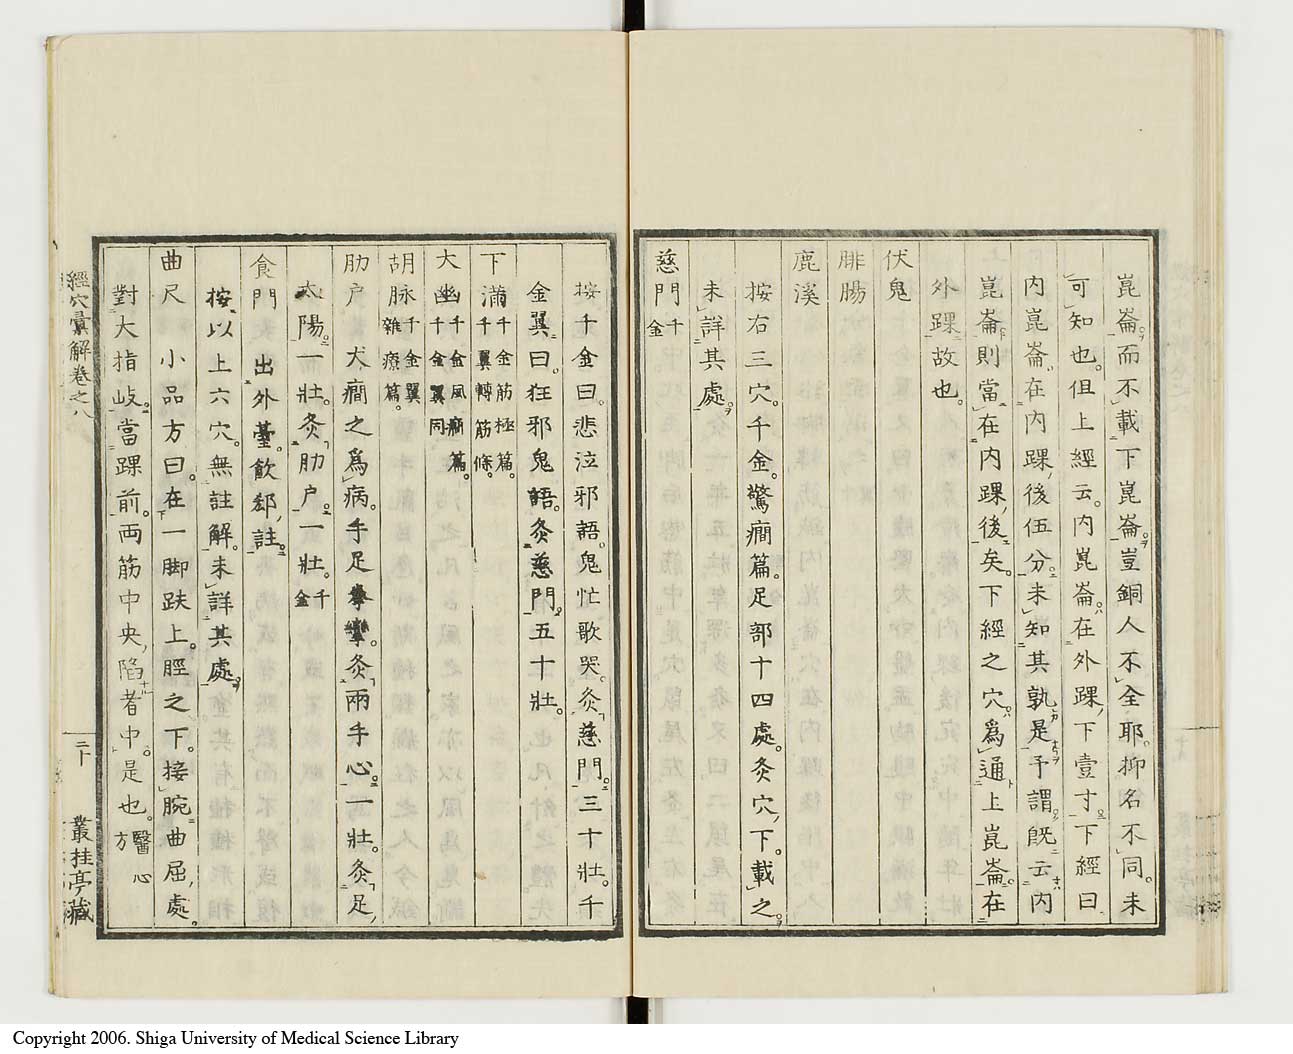 崑崙而不載下崑崙豈銅人不全耶抑名不同未
可知也但上經云内崑崙在外踝下壹寸下經曰
内崑崙在内踝後伍分未知其孰是予謂既云内
崑崙則當在内踝後矣下經之穴爲通上崑崙在
外踝故也
伏鬼
腓腸
鹿溪
按右三穴千金驚癇篇足部十四處灸穴下載之
未詳其處
慈門千金
按千金曰悲泣邪語鬼忙歌哭灸慈門三十壯千
金翼曰狂邪鬼語灸慈門五十壯
下滿千金筋極篇千翼轉筋條
大幽千金風癲篇千金翼同
胡脉千金翼雜療篇
肋户 犬癇之爲病手足攣攣灸兩手心一壯灸足
太陽一壯灸肋户一壯千金
食門 出外臺飲郄註
按以上六穴無註解未詳其處
曲尺 小品方曰在一脚趺上脛之下接腕曲屈處
對大指歧當踝前両筋中央陷者中是也醫心方
經穴彙解卷之八
二十
叢桂亭藏
Copyright 2006. Shiga University of Medical Science Library